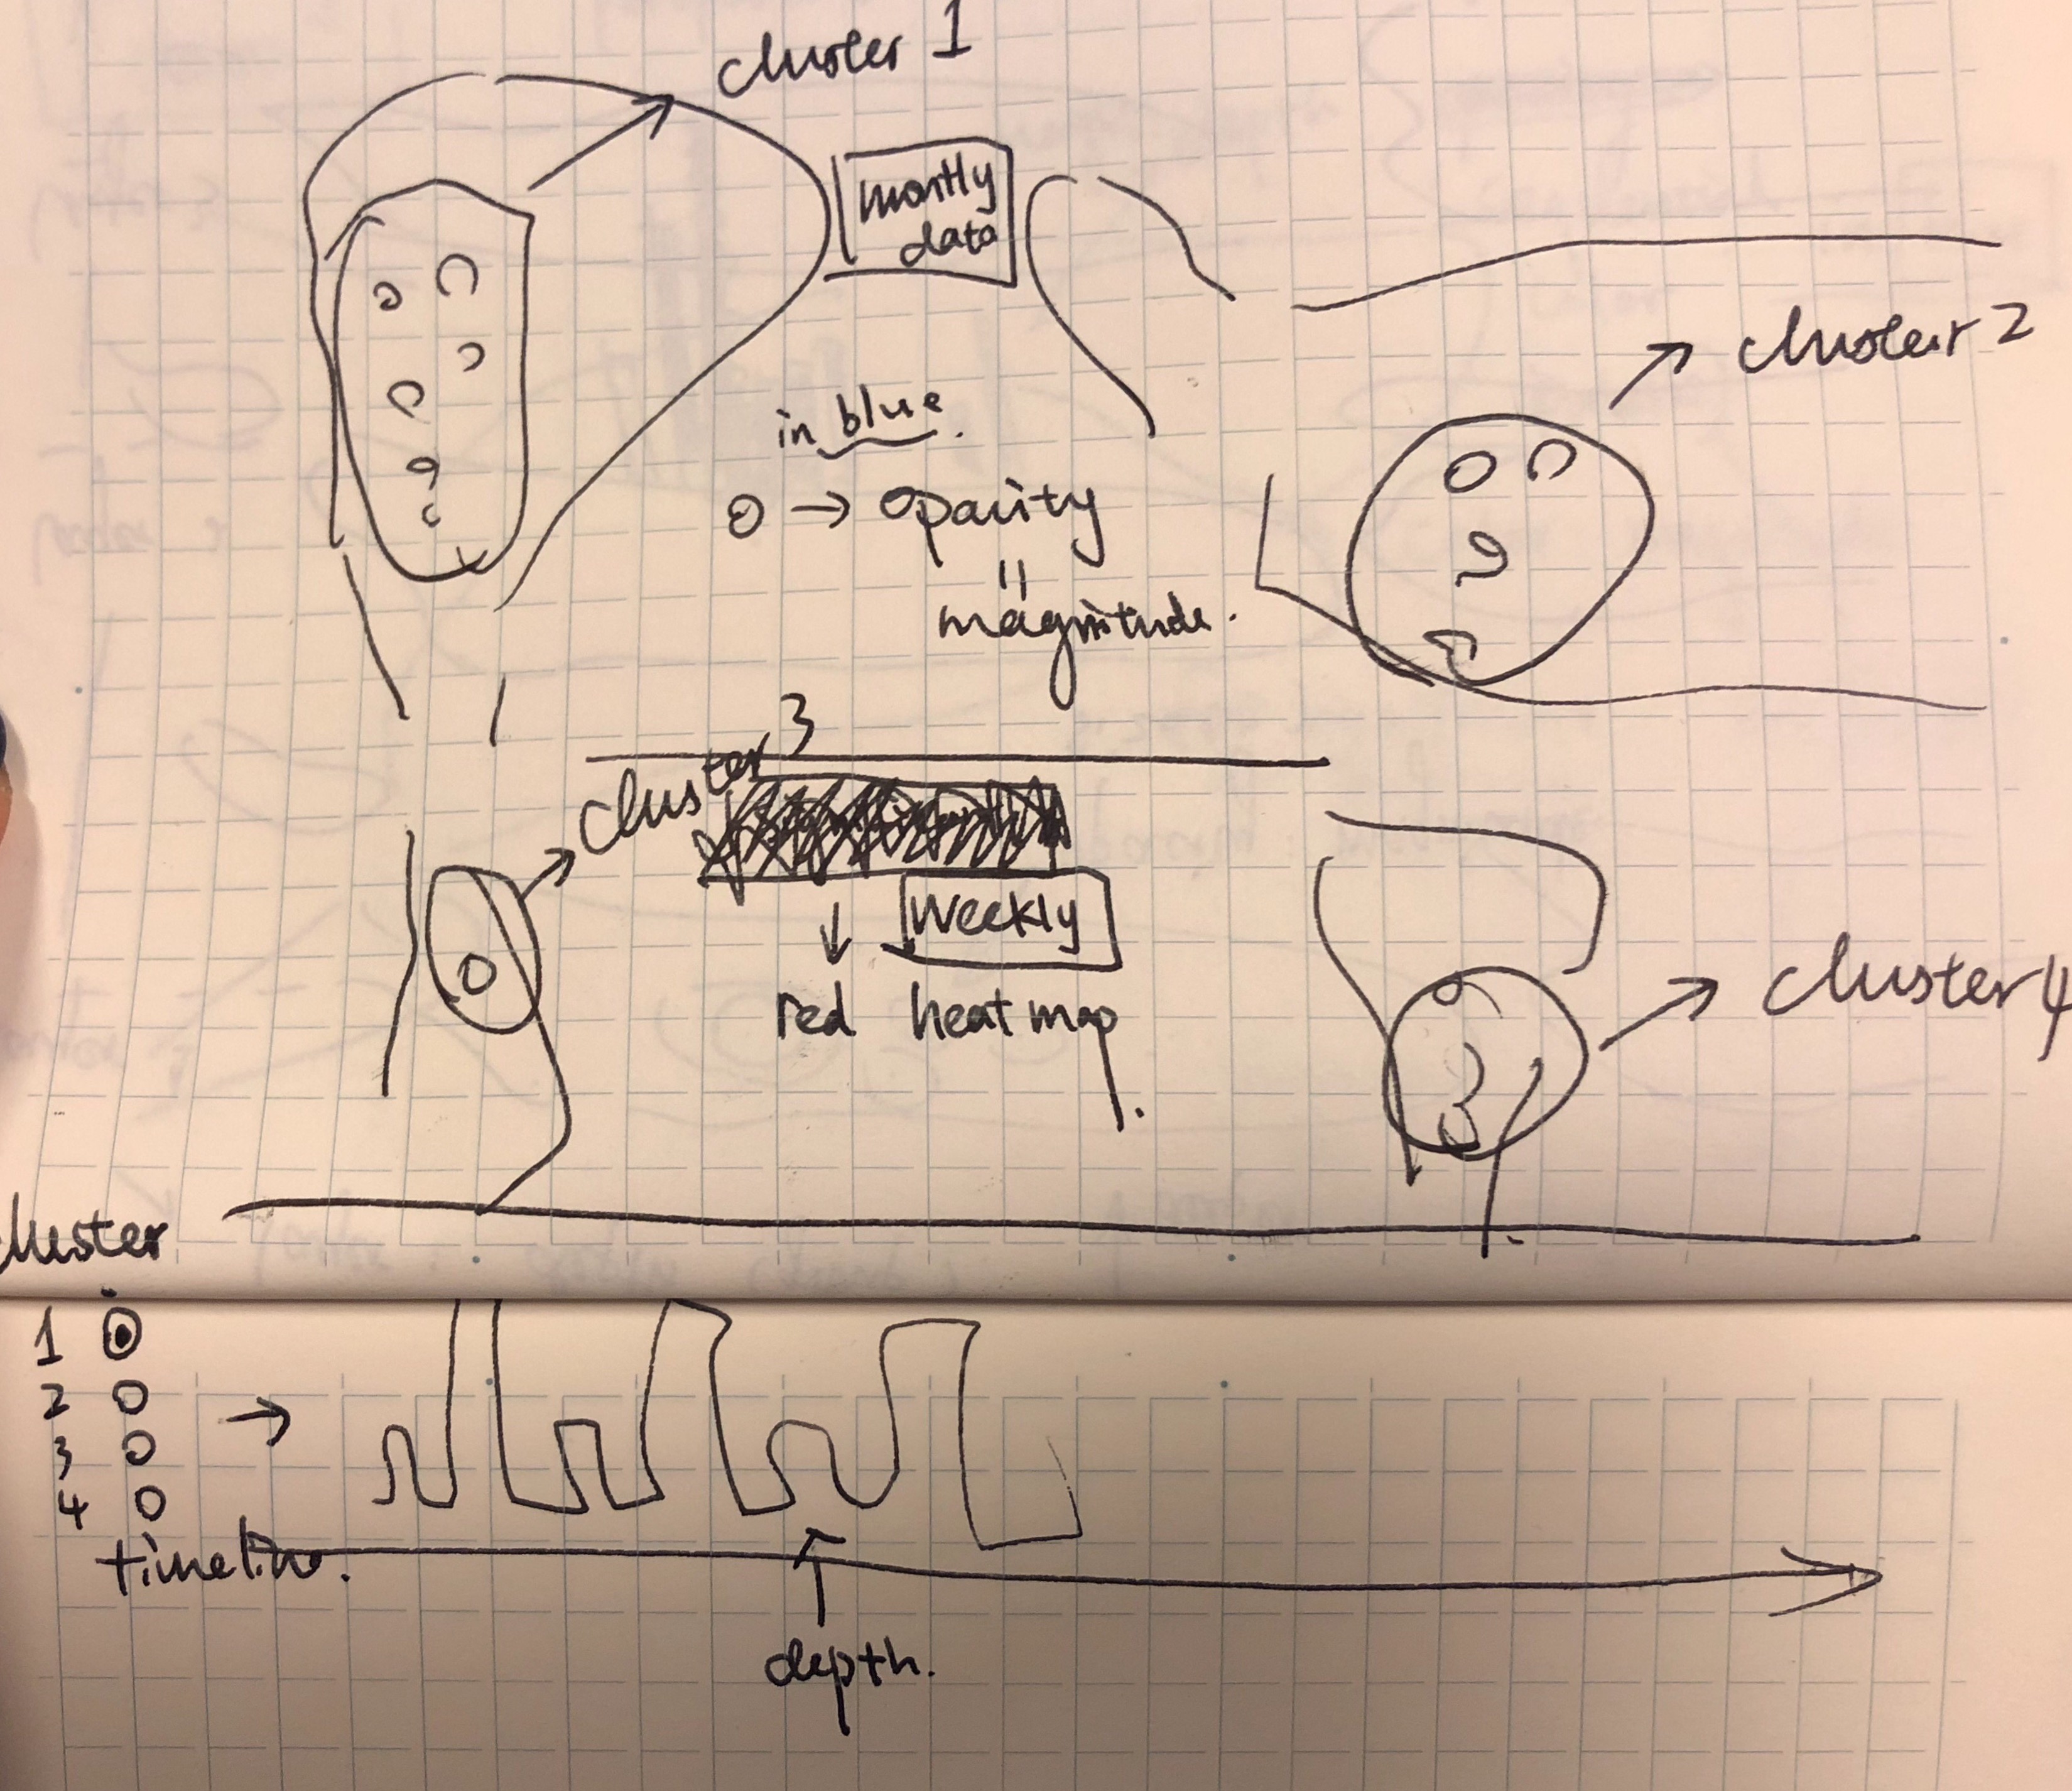 cluster 1
montly
data
cluster 2
in blue.
O → opacity
=
magnitude.
cluster 3
Weekly
red heat map
cluster 4
cluster
1
2
3
4
timeline.
depth.